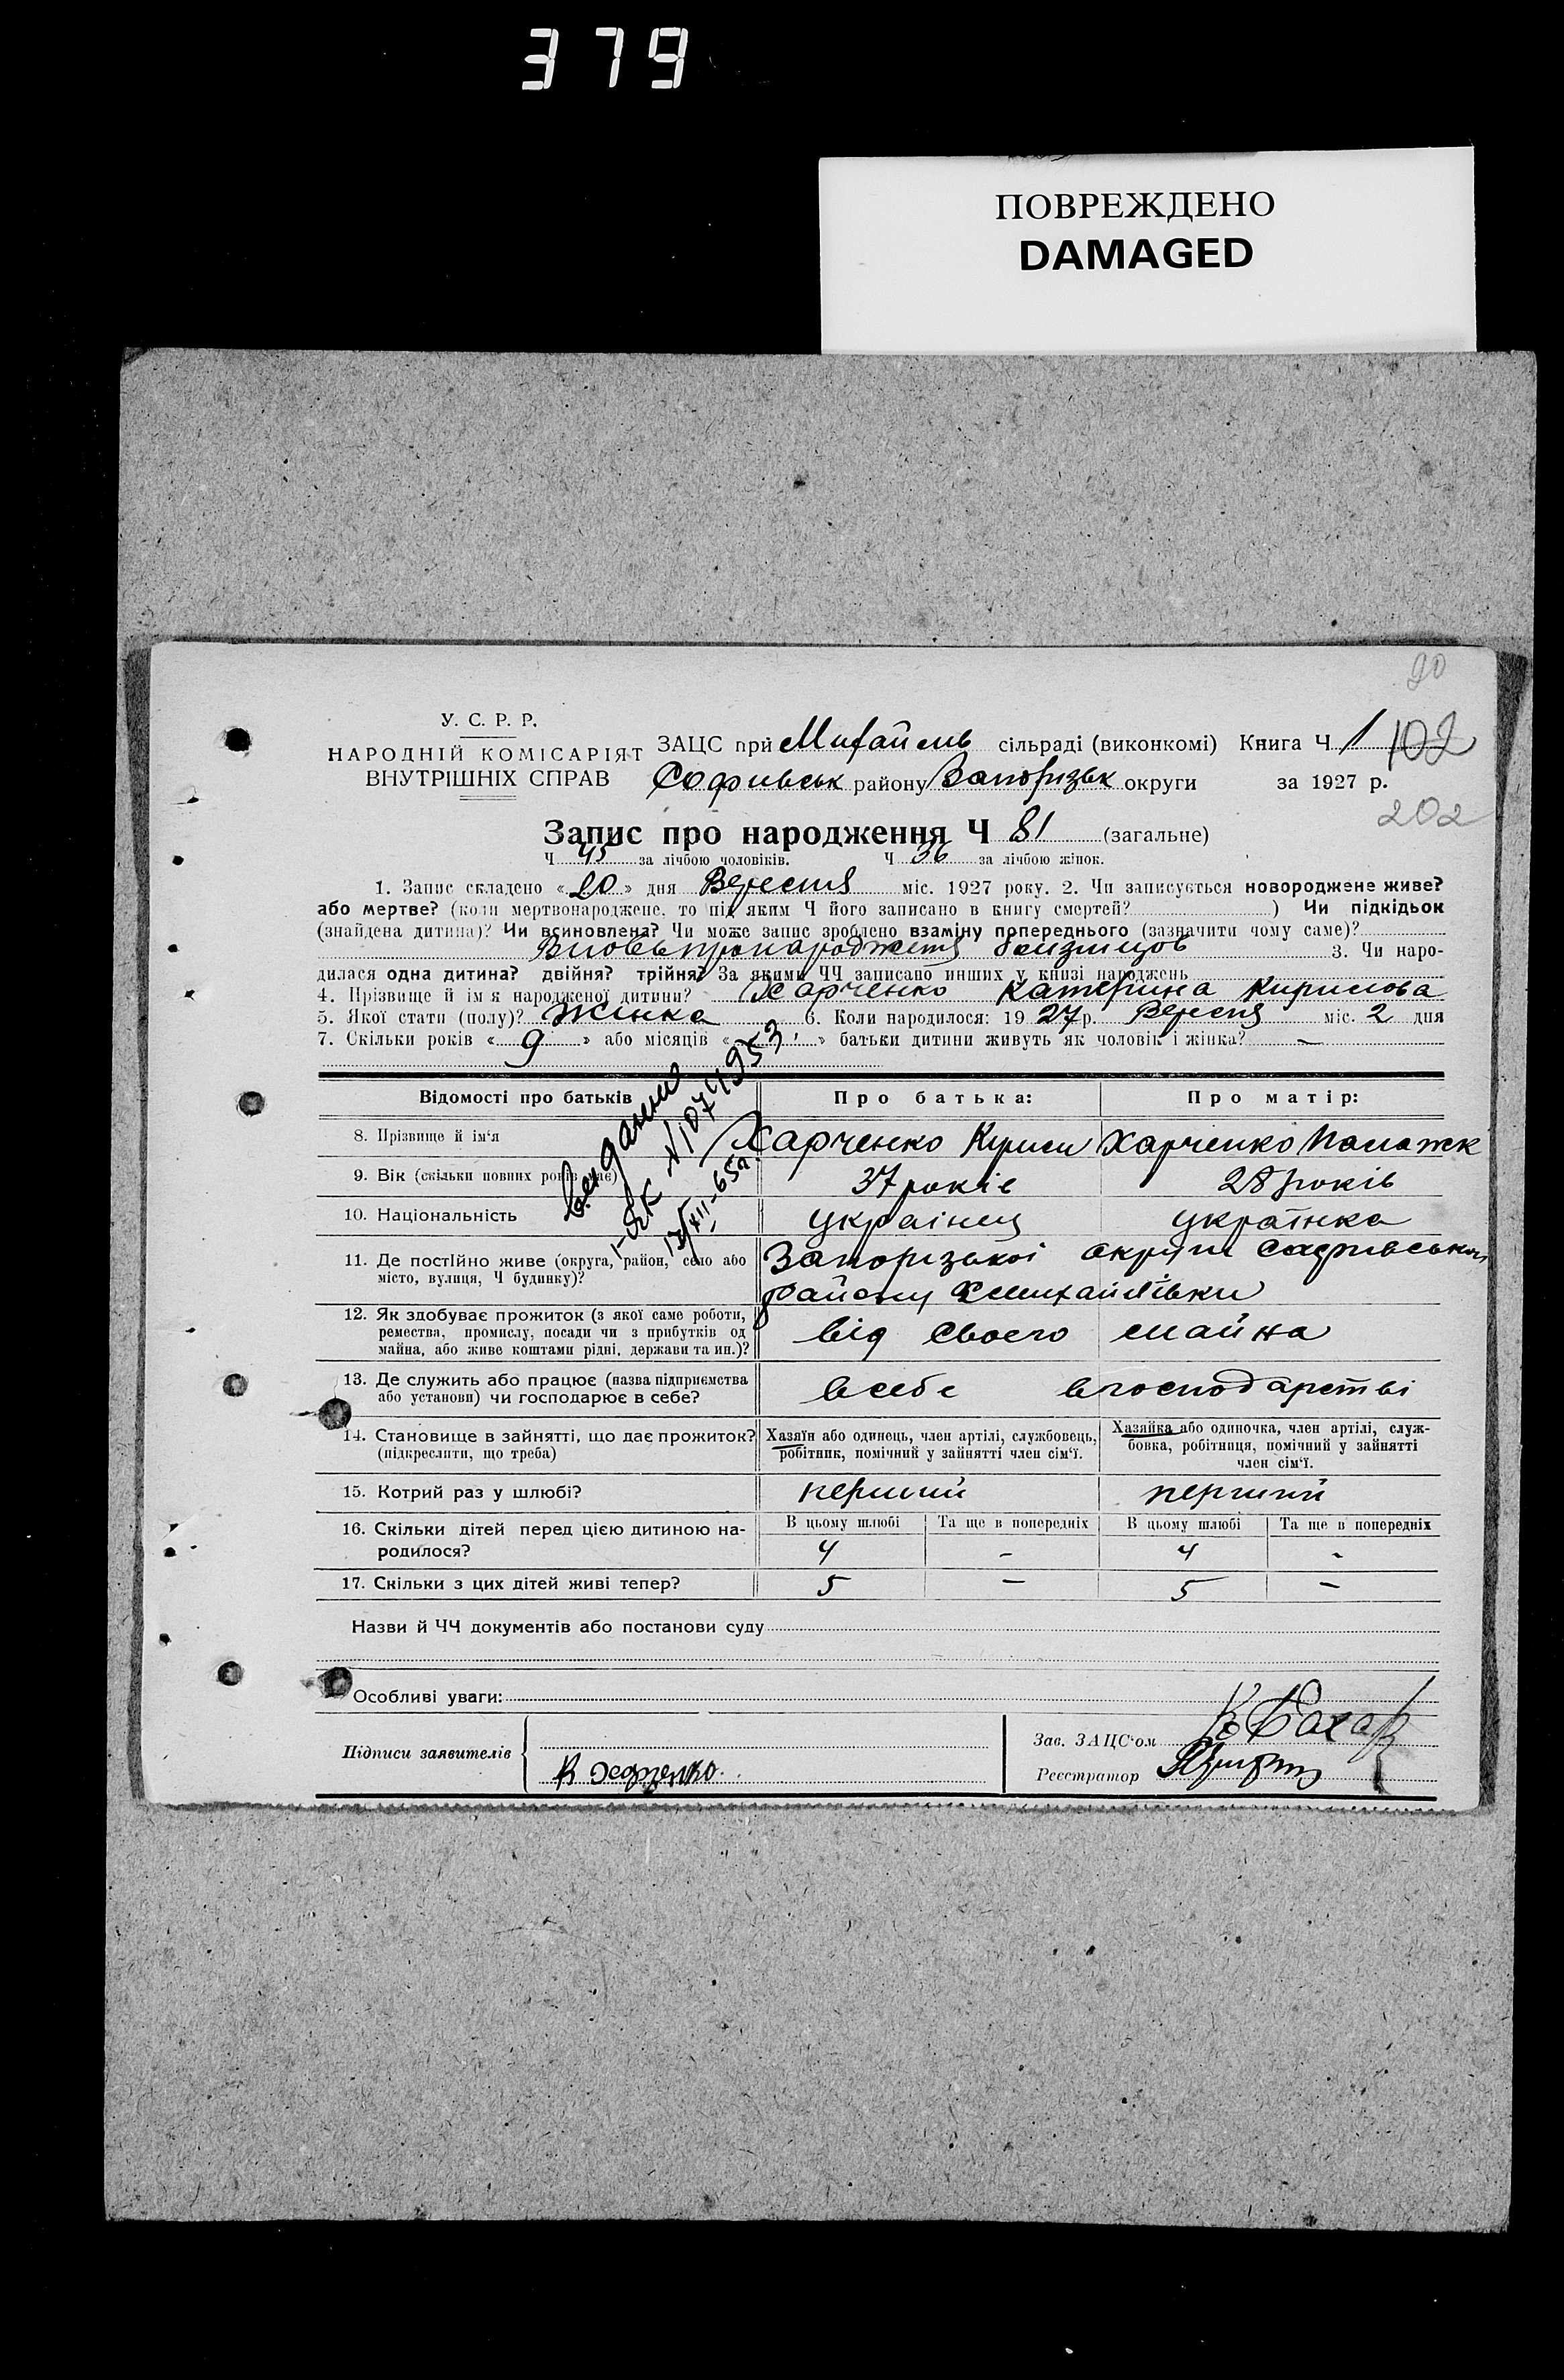 379
ПОВРЕЖДЕНО
DAMAGED
90
У. С. Р. Р.
НАРОДНІЙ КОМІСАРІЯТ
ВНУТРІШНІХ СПРАВ
ЗАЦС при Михайлів сільраді (виконкомі) Книга Ч 1
102
Софиївськ району Запорізьк округи за 1927 р.
202
Запис про народження Ч 81 (загальне)
Ч 45 за лічбою чоловіків. Ч 36 за лічбою жінок.
1. Запис складено «20» дня Вересня міс. 1927 року. 2. Чи записується новороджене живе?
або мертве? (коли мертвонароджене, то під яким Ч його записано в книгу смертей? ) Чи підкідьок
(знайдена дитина)? Чи всиновлена? Чи може запис зроблено взаміну попереднього (зазначити чому саме)?
3. Чи наро-
дилася одна дитина? двійня? трійня? За якими ЧЧ записано инших у книзі народжень
4. Прізвище й ім'я народженої дитини? Харченко Катерина Кирилова
5. Якої стати (полу)? Жінка 6. Коли народилося: 1927 р. Вересня міс. 2 дня
7. Скільки років «9» або місяців « » батьки дитини живуть як чоловік і жінка? —
Відомості про батьків Про батька: Про матір:
8. Прізвище й ім'я Харченко Кирили Харченко Палажк
9. Вік (скільки повних років має) 37 років 28 років
10. Національність українец українка
11. Де постійно живе (округа, район, село або
місто, вулиця, Ч будинку)?
Запорізької округи Софиївської
району Михайлівки
12. Як здобуває прожиток (з якої саме роботи,
ремества, промислу, посади чи з прибутків од
майна, або живе коштами рідні, держави та ин.)?
від своего майна
13. Де служить або працює (назва підприємства
або установи) чи господарює в себе?
в себе в господарстві
14. Становище в зайнятті, що дає прожиток?
(підкреслити, що треба)
Хазяїн або одинець, член артілі, службовець,
робітник, помічний у зайнятті член сім'ї.
Хазяйка або одиночка, член артілі, служ-
бовка, робітниця, помічний у зайнятті
член сім'ї.
15. Котрий раз у шлюбі? перший перший
16. Скільки дітей перед цією дитиною на-
родилося?
В цьому шлюбі Та ще в попередніх В цьому шлюбі Та ще в попередніх
4 - 4 -
17. Скільки з цих дітей живі тепер? 5 — 5 —
Назви й ЧЧ документів або постанови суду
Особливі уваги:
Підписи заявителів
К Харченко
Зав. ЗАЦС'ом
Реєстратор